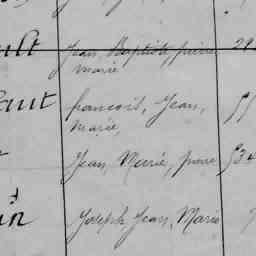 ult Jean, Baptiste, pierre 29
marie
francois, Jean,
marie,
Jean, Marie, pierre 534
in Joseph Jean, Marie